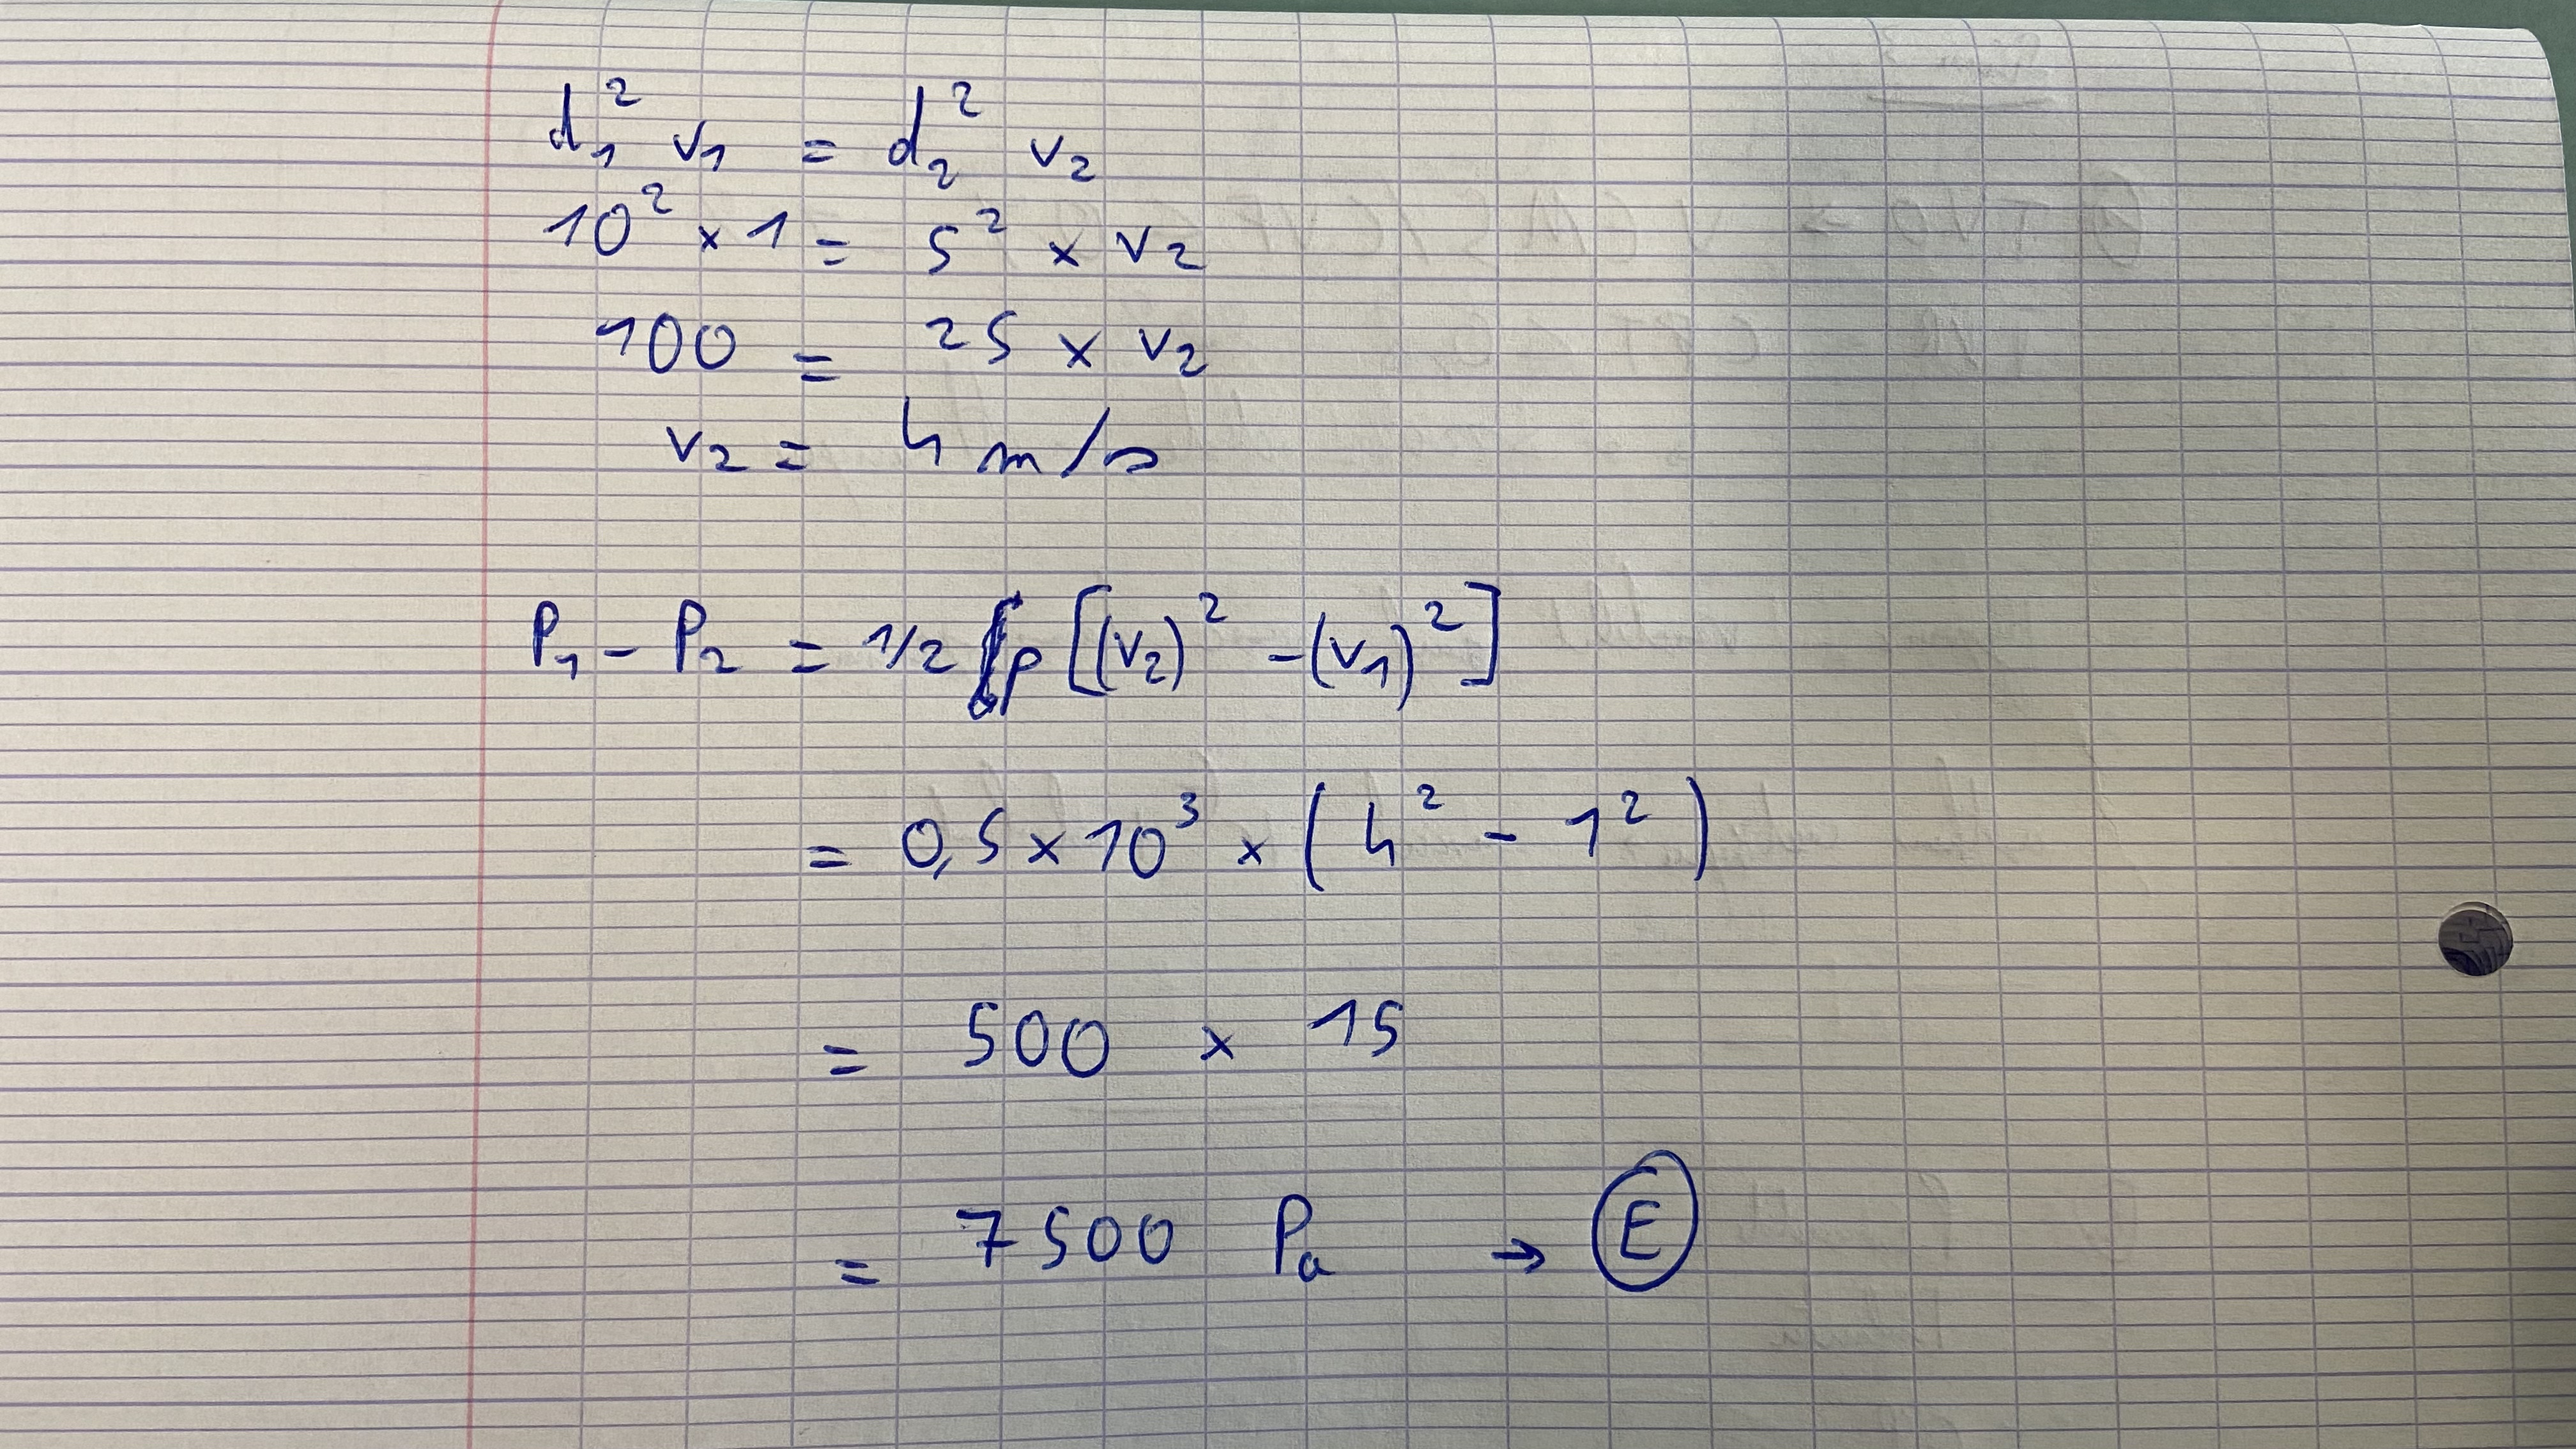 d₁² v₁ = d₂² v₂
10² × 1 = 5² × v₂
100 = 25 × v₂
v₂ = 4 m/s
P₁ - P₂ = 1/2 ρ [(v₂)² - (v₁)²]
= 0,5 × 10³ × (4² - 1²)
= 500 × 15
= 7500 Pa → E